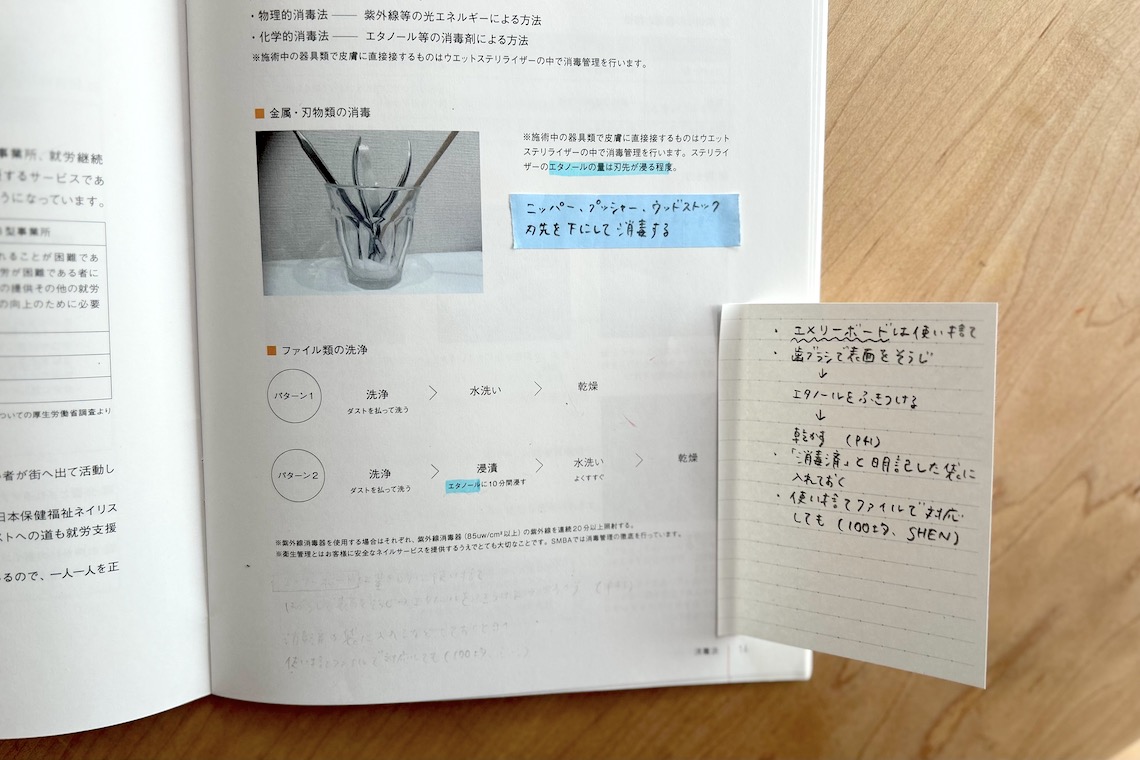 事業所、就労継続
するサービスであ
うになっています。
型事業所
れることが困難であ
労が困難である者に
の提供その他の就労
の向上のために必要
ついての厚生労働省調査より
者が街へ出て活動し
日本保健福祉ネイリス
ストへの道も就労支援
るので、一人一人を正
・物理的消毒法 —— 紫外線等の光エネルギーによる方法
・化学的消毒法 —— エタノール等の消毒剤による方法
※施術中の器具類で皮膚に直接接するものはウエットステリライザーの中で消毒管理を行います。
■ 金属・刃物類の消毒
※施術中の器具類で皮膚に直接接するものはウエット
ステリライザーの中で消毒管理を行います。ステリライ
ザーのエタノールの量は刃先が浸る程度。
ニッパー、プッシャー、ウッドストック
刃先を下にして消毒する
■ ファイル類の洗浄
パターン1
洗浄 > 水洗い > 乾燥
ダストを払って洗う
パターン2
洗浄 > 浸漬 > 水洗い > 乾燥
ダストを払って洗う エタノールに10分間浸す よくすすぐ
※紫外線消毒器を使用する場合はそれぞれ、紫外線消毒器(85uw/cm²以上)の紫外線を連続20分以上照射する。
※衛生管理とはお客様に安全なネイルサービスを提供するうえでとても大切なことです。SMBAでは消毒管理の徹底を行っています。
消毒法
・エメリーボードは使い捨て
・歯ブラシで表面をそうじ
↓
エタノールをふきつける
↓
乾かす (P41)
・「消毒済」と明記した袋に
入れておく
・使い捨てファイルで対応
しても (100均、SHEN)